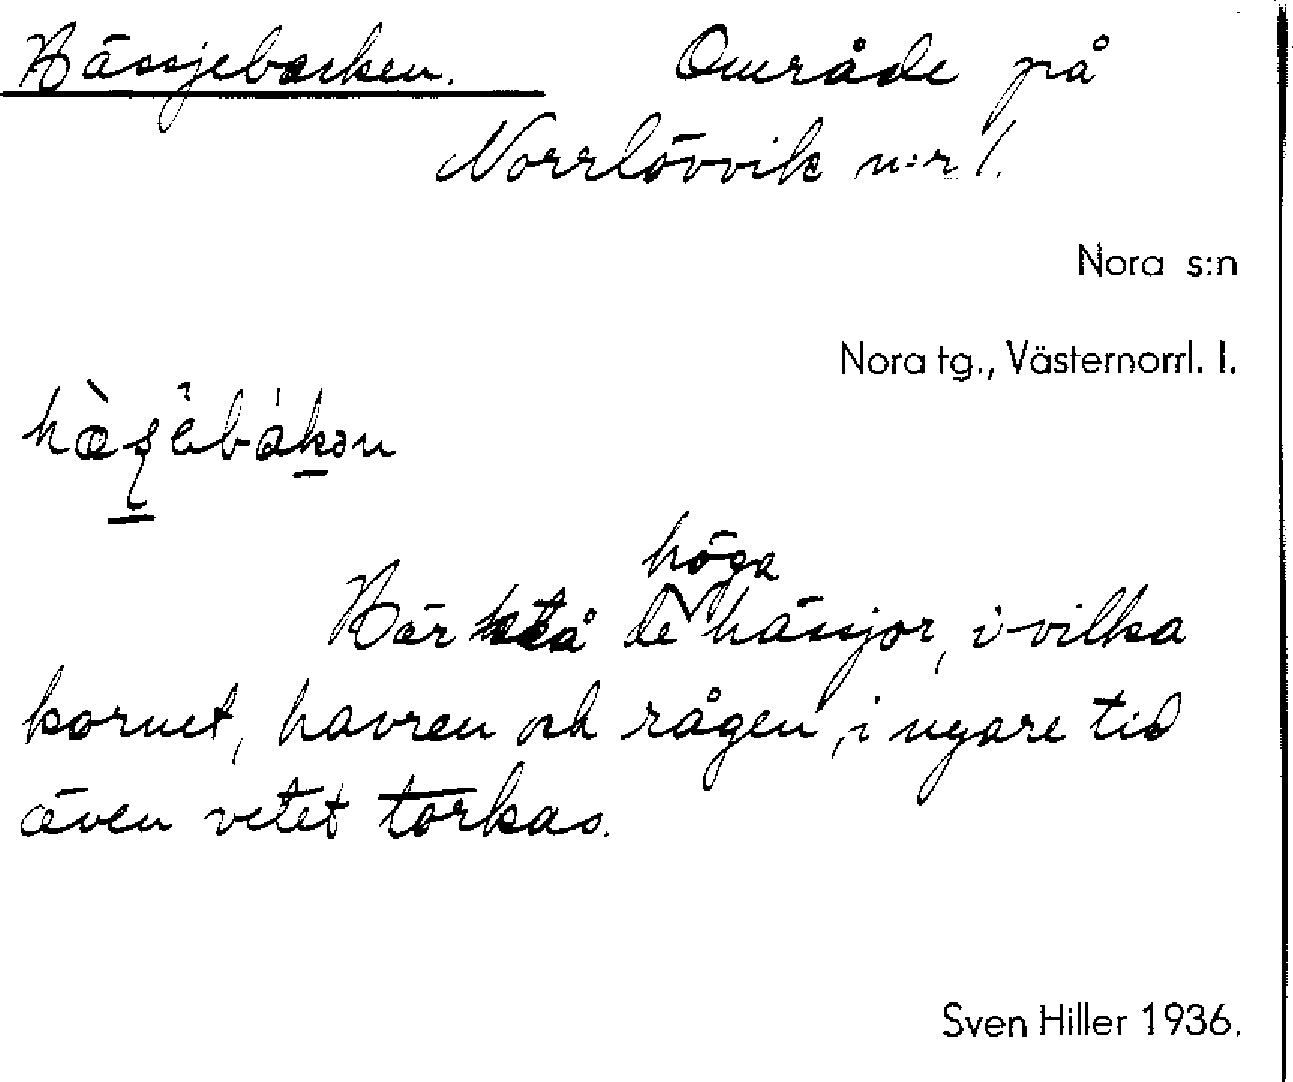 Hässjebacken. Område på
Norrlövvik n:r 1.
Nora s:n
Nora tg., Västernorrl. l.
Här stå de höga hässjor, i vilka
kornet, havren och rågen, i nyare tid
även vetet torkas.
Sven Hiller 1936.